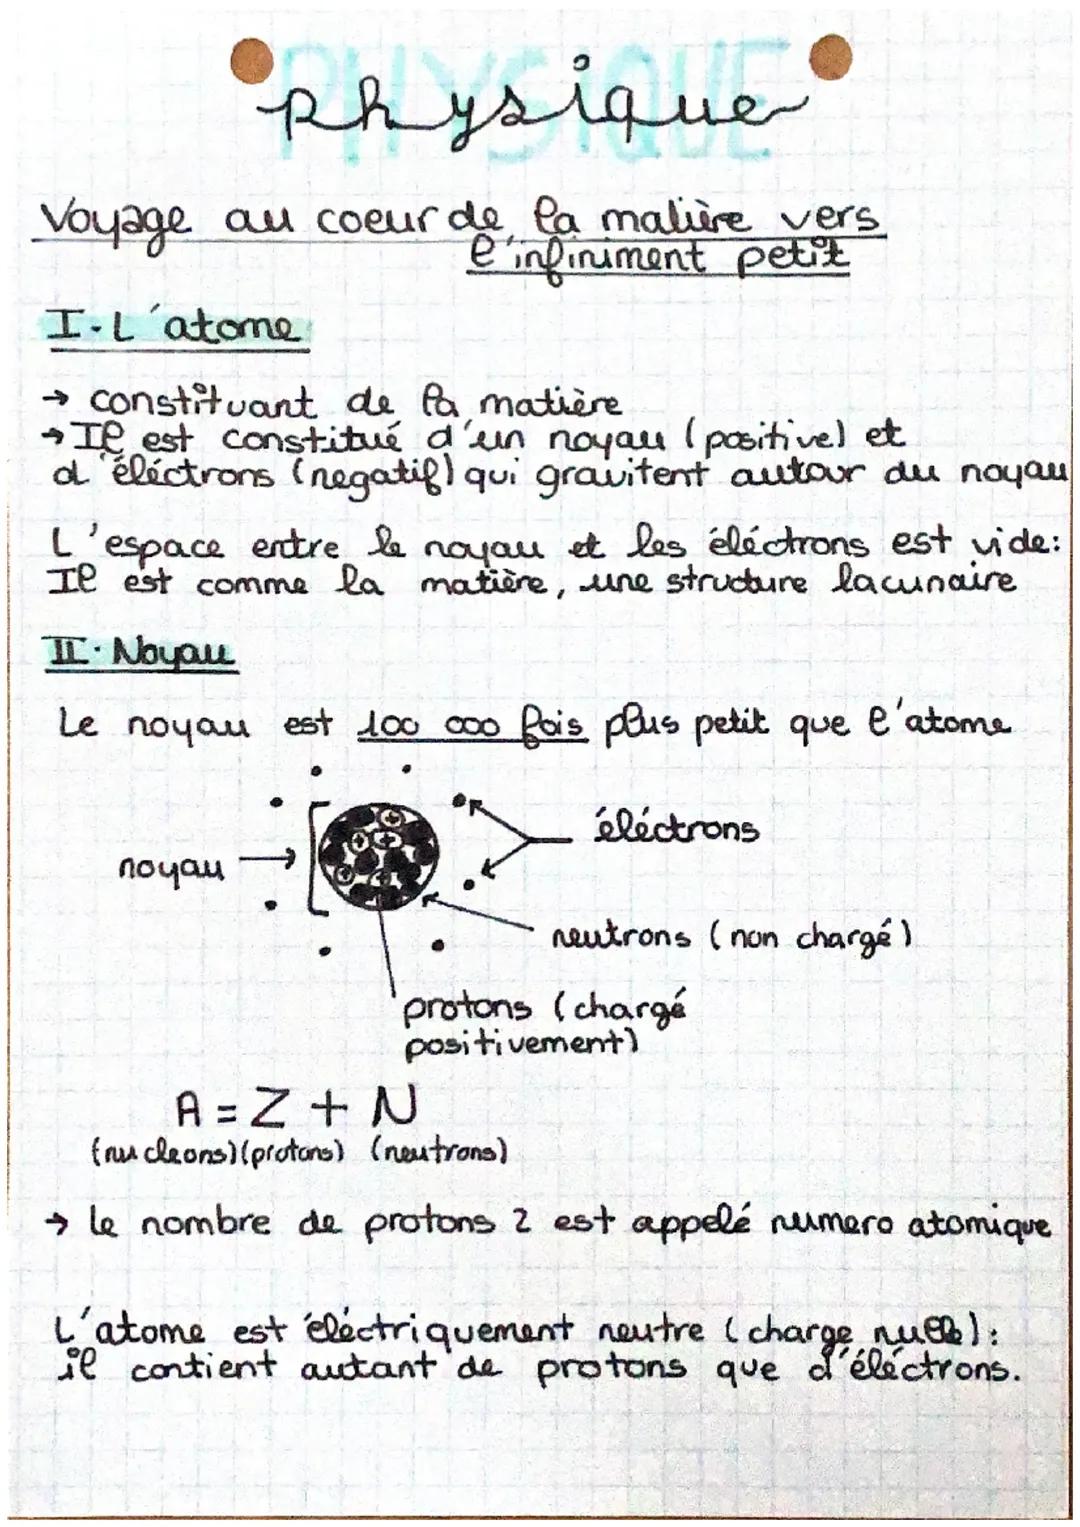 PHYSIQUE
physique
Voyage au coeur de la matière vers
l'infiniment petit
I. L'atome
→ constituant de la matière
→ Il est constitué d'un noyau (positive) et
d'éléctrons (negatif) qui gravitent autour du noyau
L'espace entre le noyau et les éléctrons est vide:
Il est comme la matière, une structure lacunaire
II. Noyau
Le noyau est 100 000 fois plus petit que l'atome
éléctrons
noyau
neutrons (non chargé)
protons (chargé
positivement)
A = Z + N
(nucleons) (protons) (neutrons)
→ le nombre de protons Z est appelé numero atomique
L'atome est éléctriquement neutre (charge nulle):
il contient autant de protons que d'éléctrons.